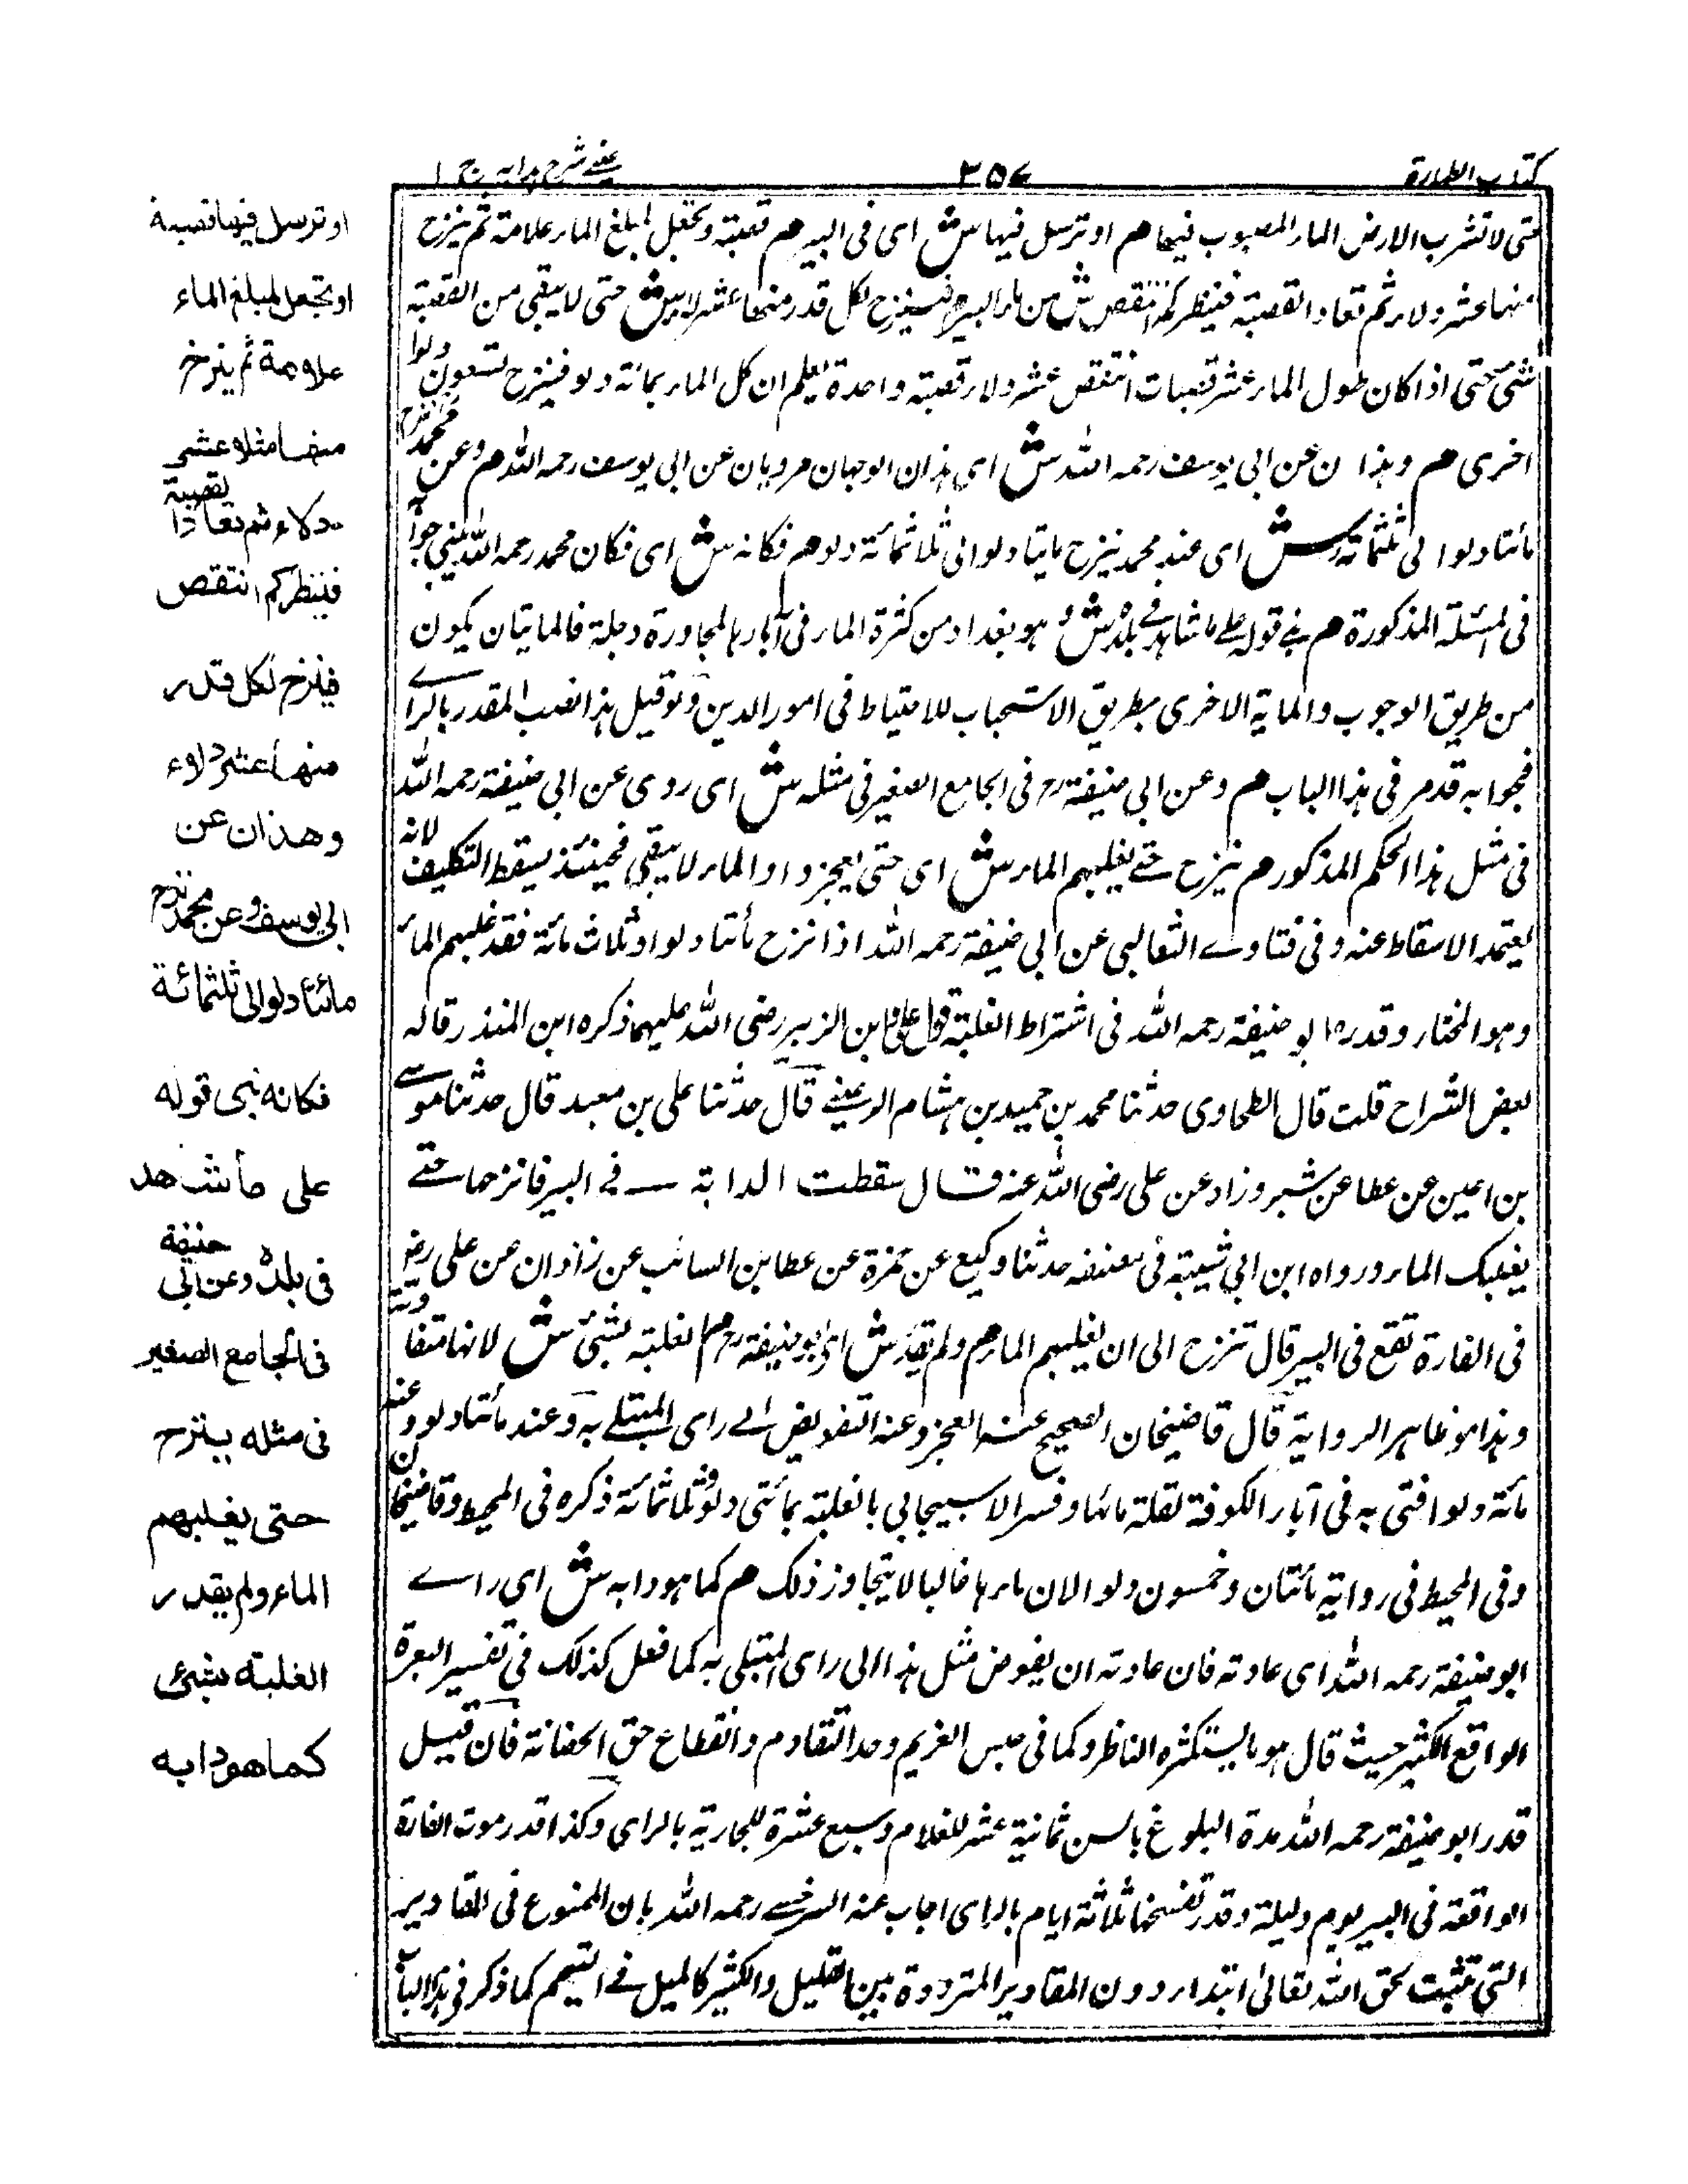 كتاب الطهارة
٣٥٧
عيني شرح هدايه ج ١
حتى لا تشرب الارض الماء المصبوب فيها هم او ترسل فيها ش اى فى البير هم قصبة وتجعل لمبلغ الماء علامة ثم ينزح
منها عشر دلاء ثم تعاد القصبة فينظر كم انتقص ش من ماء البير هم فينزح لكل قدر منها عشر دلاء ش حتى لا يبقى من القصبة
شئ حتى اذا كان طول الماء عشر قصبات انتقص عشر دلاء قصبة واحدة يعلم ان كل الماء بمائة دلو فينزح تسعون دلوا
اخرى هم وهذا ن عن ابي يوسف رحمه الله ش اى هذان الوجهان مرويان عن ابي يوسف رحمه الله هم وعن محمد نزح
مأتا دلو الى ثلثمائة ش اى عند محمد ينزح مايتا دلو الى ثلاثمائة دلو هم فكانه ش اى فكان محمد رحمه الله بنى جوا
فى المسئلة المذكورة هم بنى قوله على ما شاهد فى بلده ش وهو بغداد من كثرة الماء فى آبارها لمجاورة دجلة فالمايتان يكون
من طريق الوجوب والماية الاخرى بطريق الاستحباب للاحتياط فى امور الدين ولو قيل هذا نصب المقدر بالراے
فجوابه قد مر فى هذا الباب هم وعن ابي حنيفة رح فى الجامع الصغير فى مثله ش اى روى عن ابي حنيفة رحمه الله
فى مثل هذا الحكم المذكور هم ينزح حتے يغلبهم الماء ش اى حتى يعجزوا او الماء لا يبقى فحينئذ يسقط التكليف لانه
يعتمد الاسقاط عنه وفى فتاوے الثعالبى عن ابي حنيفة رحمه الله اذا نزح مأتا دلو او ثلاث مائة فقد غلبهم الماء
وهو المختار وقدره ابو حنيفة رحمه الله فى اشتراط الغلبة قول على وابن الزبير رضى الله عليهما ذكره ابن المنذر قاله
بعض الشراح قلت قال الطحاوى حدثنا محمد بن حميد بن هشام الرعينے قال حدثنا على بن معبد قال حدثنا موسے
بن اعين عن عطا عن ميسرة وزاد عن على رضى الله عنه قال سقطت الدابة فى البير فانزحها حتے
يغلبك الماء ورواه ابن ابي شيبة فى مصنفه حدثنا وكيع عن حمزة عن عطا بن السائب عن زاذان عن على رض
فى الفارة تقع فى البير قال تنزح الى ان يغلبهم الماء هم ولم يقدر ش اى ابو حنيفة رح هم الغلبة بشئ ش لانها متفاوتة
وهذا هو ظاهر الرواية قال قاضيخان الصحيح عنه العجز وعنه التفويض الے راى المبتلے به وعند مأتا دلو وعنه
مائة دلو افتى به فى آبار الكوفة لقلة مائها وفسر الاسبيجابي بالغلبة بمأتى دلو وثلاثمائة ذكره فى المحيط وقاضيخان
وفى المحيط فى رواية مأتتان وخمسون دلوا لان ماءها غالبا لا يتجاوز ذلك هم كما هو دابه ش اى راے
ابو حنيفة رحمه الله اى عادته فان عادته ان يفوض مثل هذا الى راى المبتلى به كما فعل كذلك فى تفسير البعرة
الواقع الكثير حيث قال هو ما يستكثره الناظر وكما فى حبس الغريم وحد التقادم وانقطاع حق الحضانة فان قيل
قدر ابو حنيفة رحمه الله مدة البلوغ بالسن ثمانية عشر للغلام وسبع عشرة للجارية بالراى وكذا قدر موت الفارة
الواقعة فى البير يوم وليلة وقدر تفسخها ثلاثة ايام بالراى اجاب عنه السرخسے رحمه الله بان الممنوع فى المقادير
التى تثبت لحق الله تعالىٰ ابتداء دون المقادير المترددة بين القليل والكثير كالميل فے التيمم كما ذكر فى هذا الباب
او ترسل فيها قصبة
او تجعل لمبلغ الماء
علامة ثم ينزح
منها مثلا عشر
دلاء ثم تعاد القصبة
فينظر كم انتقص
فينزح لكل قدر
منها عشر دلاء
وهذان عن
ابى يوسف وعن محمد نزح
مائتا دلو الى ثلثمائة
فكانه بنى قوله
على ما شاهد
فى بلده وعن ابى حنيفة
فى الجامع الصغير
فى مثله ينزح
حتى يغلبهم
الماء ولم يقدر
الغلبة بشئ
كما هو دابه